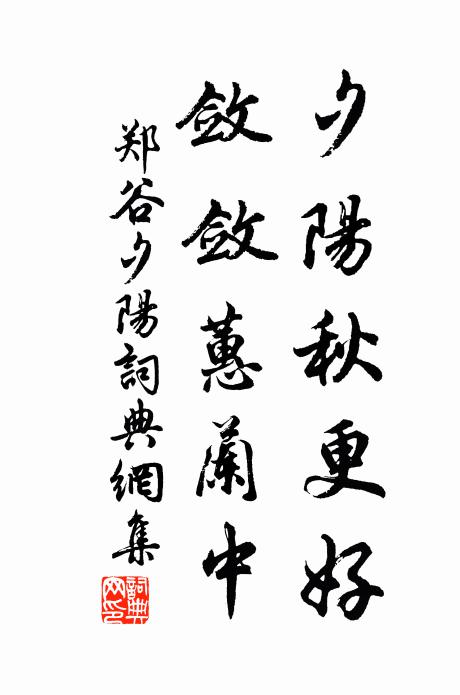 夕陽秋更好
敛敛蕙蘭中
郑谷夕陽詞典網集
詞典网印